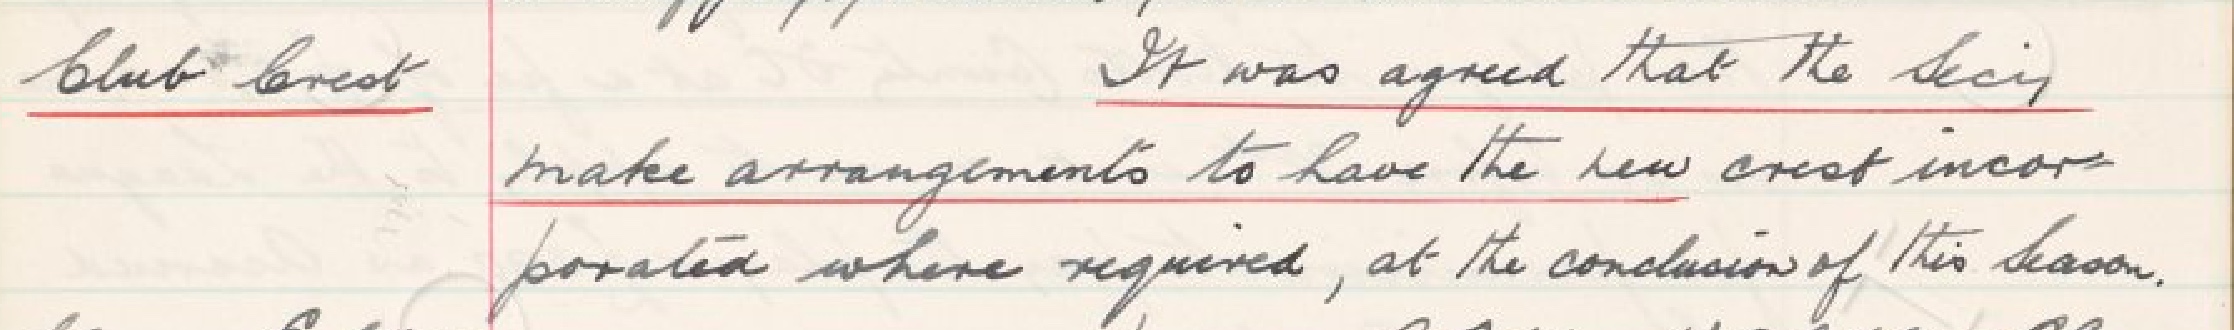 Club Crest
It was agreed that the Secy
make arrangements to have the new crest incor-
porated where required, at the conclusion of this Season.